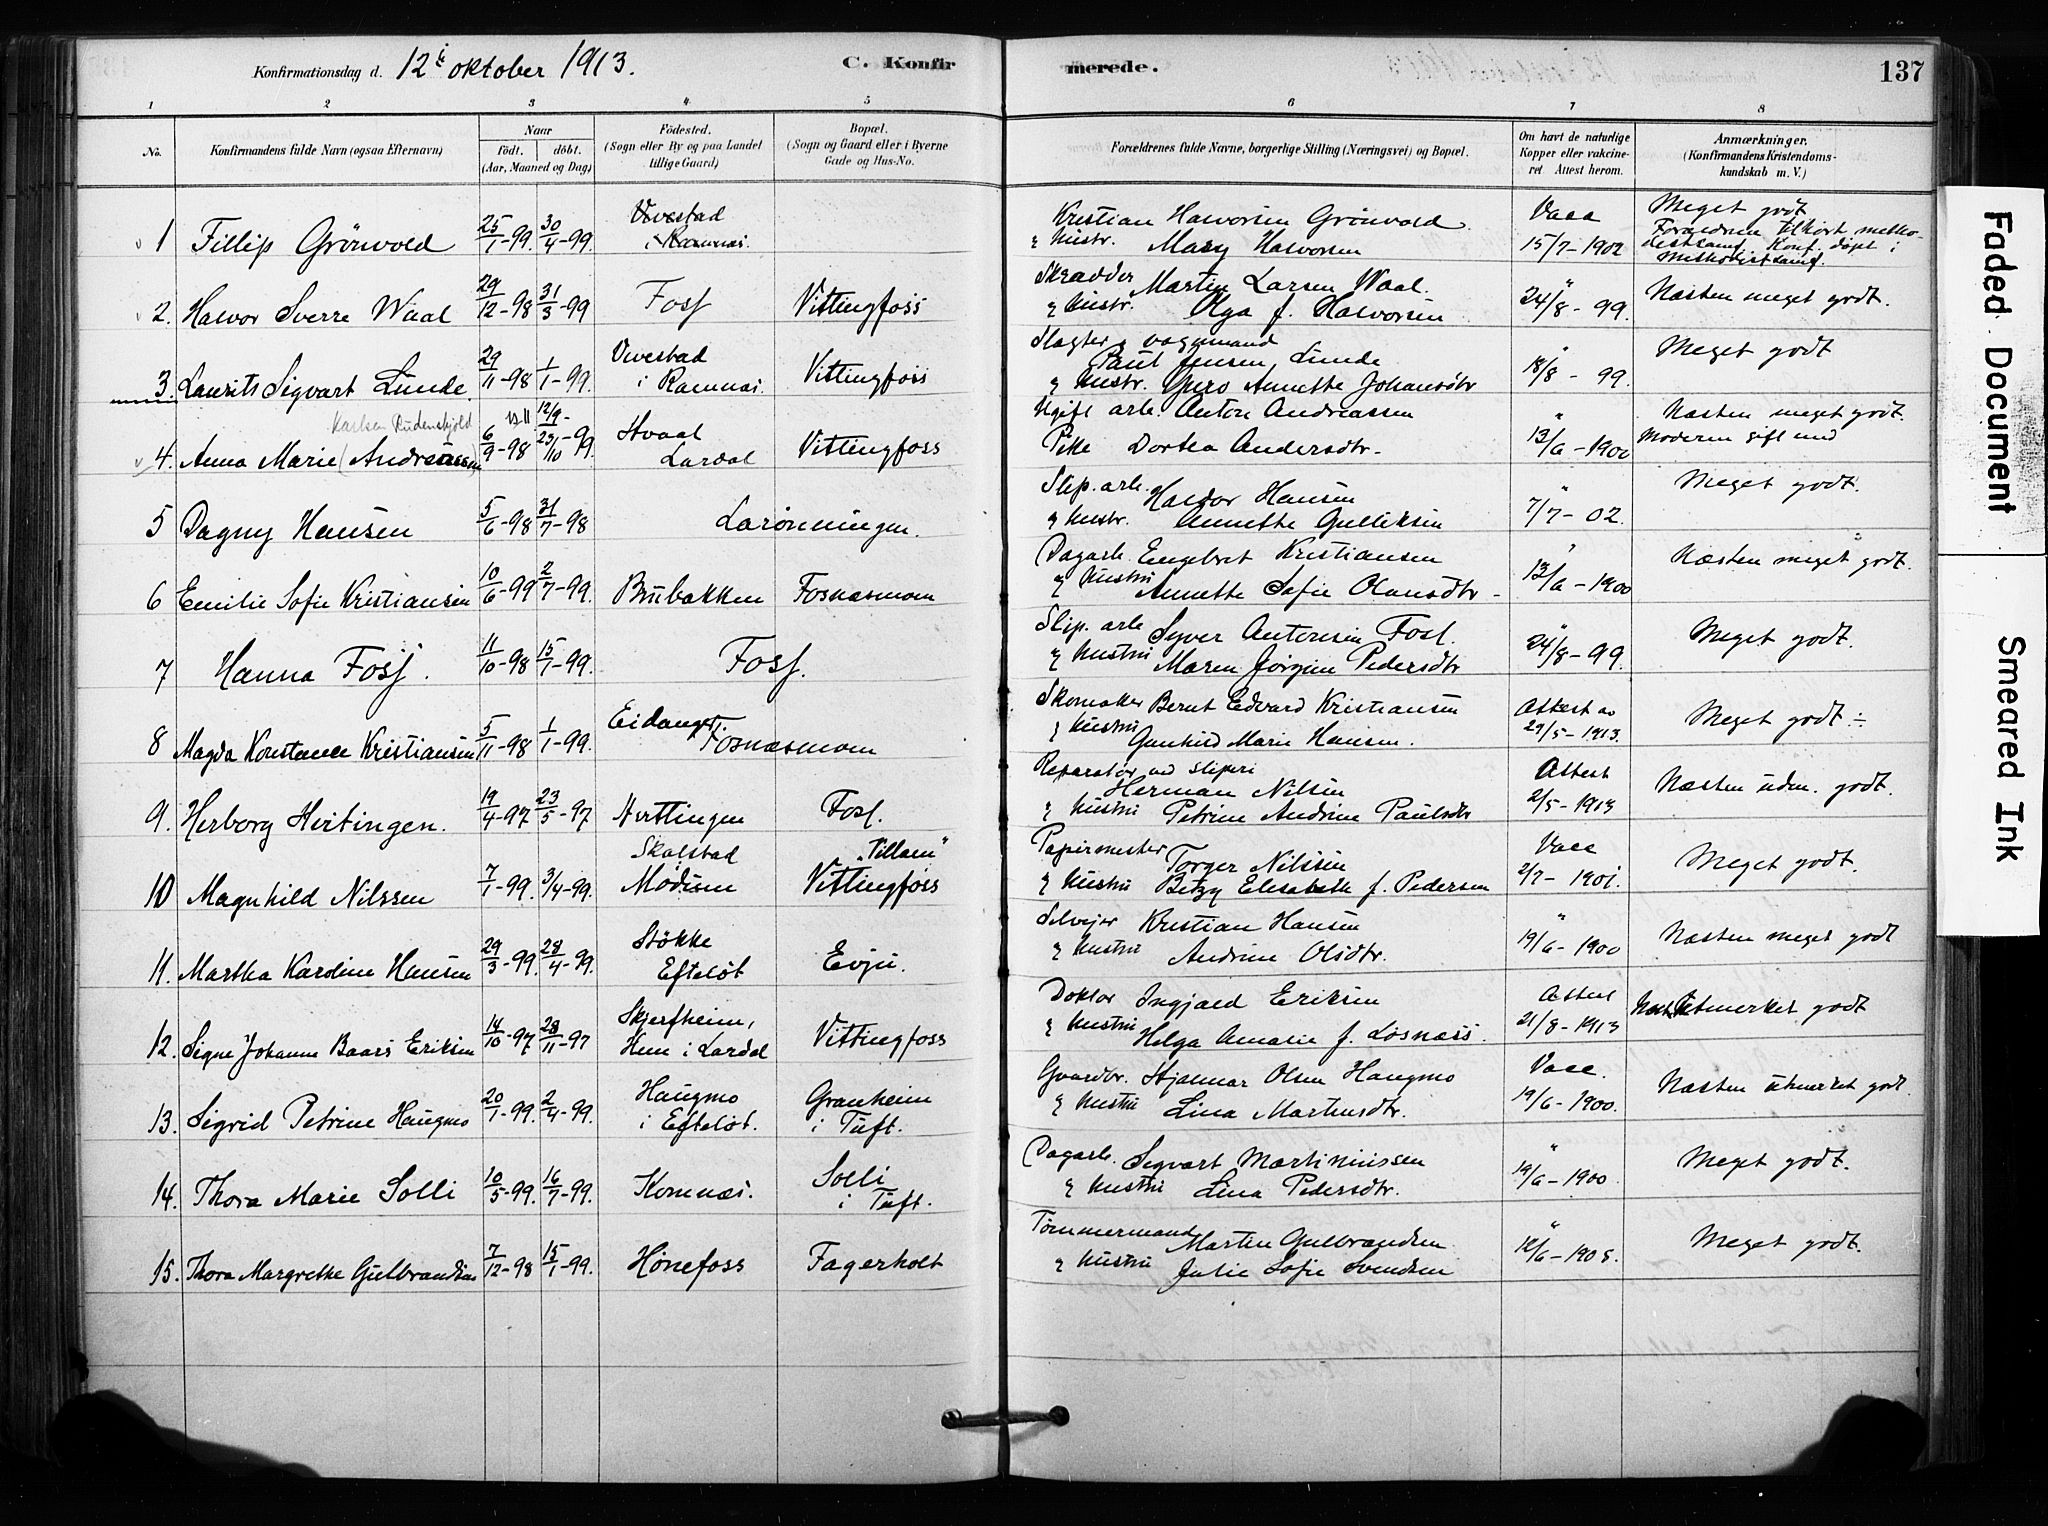 Konfirmationsdag d. 12te oktober 1913.
C. Konfirmerede.
137
1 2 3 4 5 6 7 8
No.
Konfirmandens fulde Navn (ogsaa Efternavn)
Naar
født. døbt.
(Aar, Maaned og Dag)
Fødested.
(Sogn eller By og paa Landet
tillige Gaard)
Bopæl.
(Sogn og Gaard eller i Byerne
Gade og Hus-No.
Forældrenes fulde Navne, borgerlige Stilling (Næringsvei) og Bopæl.
Om havt de naturlige
Kopper eller vakcine-
ret Attest herom.
Anmærkninger.
(Konfirmandens Kristendoms-
kundskab m. V.)
1 Fillip Grönvold 25/1-99. 30/4-99. Vivestad i Ramnæs.
Kristian Halvorsen Grönvold
& hustr. Mary Halvorsen
Vacc 15/7-1902
Meget godt
Forældrene tilhört metho-
distsamf. Konf. döpt i
Methodistsamf.
2. Halvor Sverre Waal 29/12-98 31/3-99 Fosf Vittingfoss
Skrædder Martin Larsen Waal
& hustr. Olga f. Halvorsen
" 24/8-99. Næsten meget godt.
3. Laurits Sigvart Lunde. 29/11-98 1/1-99. Vivestad i Ramnæs. Vittingfoss
Slagter & vognmand
Paul Jensen Lunde
& hustr. Guro Annette Johansdtr
" 18/8-99. Meget godt
Karlsen Rudenskjold
4. Anna Marie (Andreassen) 6/9-98 12/9- 23/10-99 Hvaal Lardal Vittingfoss
Ugift arb. Anton Andreassen
Pike Dortea Andersdtr.
" 13/6-1900 Næsten meget godt
Moderen gift med
5 Dagny Hansen 5/6-98 31/7-98 Larönningen.
Slip. arb. Haldor Hansen
& hustr. Annette Gulliksen
" 7/7-02. Meget godt.
6 Emilie Sofie Kristiansen 10/6-99 2/7-99. Brubakken Fosnæsmoen
Dagarb. Engebret Kristiansen
& hustru Annette Sofie Olausdtr
" 13/6-1900 Næsten meget godt.
7 Hanna Fosf. 11/10-98 15/1-99. Fosf.
Slip. arb Syver Antonsen Fosf.
& hustru Maren Jörgine Pedersdtr
" 24/8-99. Meget godt.
8 Magda Konstance Kristiansen 5/11-98 1/1-99. Eidanger. Fosnæsmoen
Skomaker Bernt Edvard Kristiansen
& hustru Gunhild Marie Hansen.
Attest av 29/5-1913. Meget godt ÷
9. Herborg Hvitingen. 19/4-97 23/5-97 Hvittingen Fosf.
Reparatör ved sliperi
Herman Nilsen
& hustru Petrine Andrine Paulsdtr
Attest 2/5-1913 Næsten udm. godt.
10 Magnhild Nilssen 7/1-99. 3/4-99. Skalstad Modum "Villaen" Vittingfoss
Papirmester Torger Nilssen
& hustru Betzy Elisabeth f. Pedersen
Vacc 2/7-1901. Meget godt.
11. Martha Karoline Hansen 29/3-99. 28/4-99. Stökke Efteløt Evju.
Selveier Kristian Hansen
& hustru Andrine Olsdtr.
" 19/6-1900 Næsten meget godt
12. Signe Johanne Baars Eriksen 14/10-97 28/11-97 Skjerfheim, Hem i Lardal Vittingfoss
Doktor Ingjald Eriksen
& hustru Helga Amalie f. Losnæss.
Attest 21/8-1913 Næst. utmerket godt
13. Sigrid Petrine Haugmo 20/1-99. 2/4-99. Haugmo i Efteløt. Granheim i Tuft.
Gaardbr. Hjalmar Olsen Haugmo
& hustru Lina Martinsdtr.
Vacc. 19/6-1900. Næsten utmerket godt
14. Thora Marie Solli 10/5-99. 16/7-99. Komnæs. Solli i Tuft.
Dagarb. Sigvart Martiniussen
& hustru Lina Pedersdtr.
" 19/6-1900 Meget godt.
15. Thora Margrethe Gulbrandsen 7/12-98 15/1-99. Hönefoss Fagerholt
Tömmermand Martin Gulbrandsen
& hustru Julie Sofie Svendsen
" 12/6-1905. Meget godt.
Faded Document
Smeared Ink